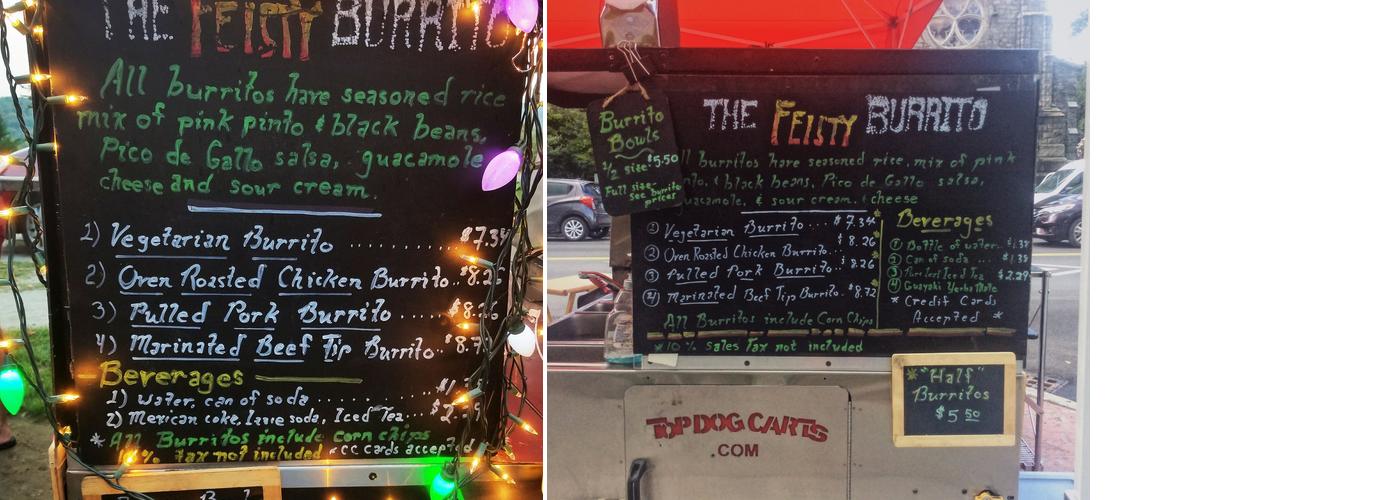 THE FEISTY BURRITO
All burritos have seasoned rice
mix of pink pinto & black beans,
Pico de Gallo salsa, guacamole
cheese and sour cream.
1) Vegetarian Burrito .......... $7.34
2) Oven Roasted Chicken Burrito.. $8.26
3) Pulled Pork Burrito ........ $8.26
4) Marinated Beef Tip Burrito.. $8.7
Beverages
1) Water, can of soda ........
2) Mexican coke, Izzie soda, Iced Tea... $2.
* All Burritos include corn chips
10% tax not included * CC cards accepted
Burrito
Bowls
1/2 size $5.50
Full size-
see burrito
prices
THE FEISTY BURRITO
All burritos have seasoned rice, mix of pink
& black beans, Pico de Gallo salsa,
guacamole, & sour cream. & cheese
1 Vegetarian Burrito ... $7.34
2 Oven Roasted Chicken Burrito.. $8.26
3 Pulled Pork Burrito.. $8.26
4 Marinated Beef Tip Burrito. $8.72
All Burritos include Corn Chips
*10% Sales Tax not included
Beverages
1 Bottle of water.. $1.38
2 Can of soda ... $1.38
3 Pure Leaf Iced Tea $2.29
4 Guayaki Yerba Mate
* Credit Cards
Accepted *
*"Half"
Burritos
$5 50
TOP DOG CARTS
.COM